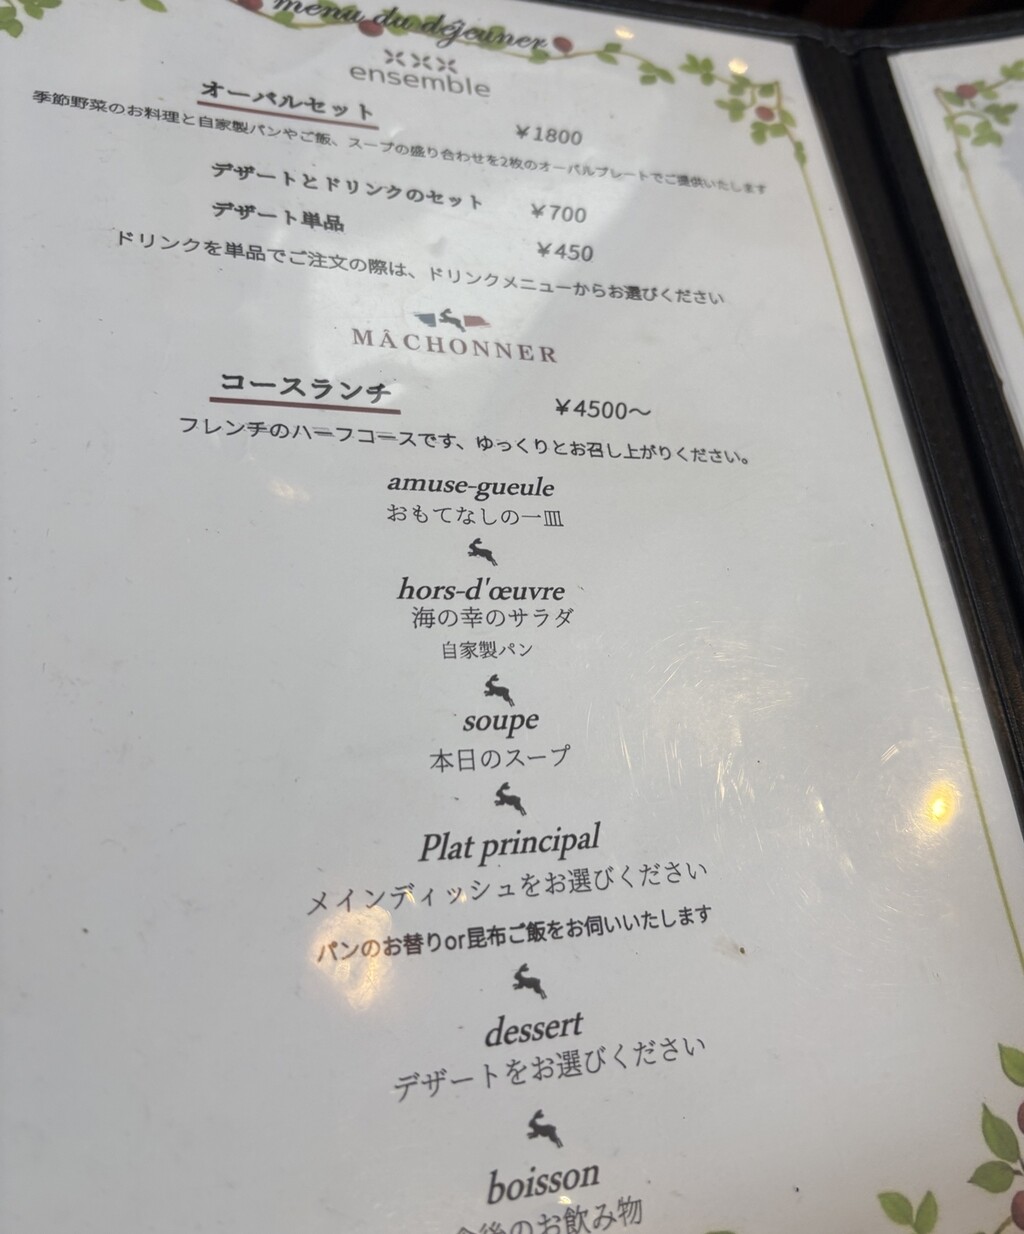 menu du déjeuner
ensemble
オーバルセット ￥1800
季節野菜のお料理と自家製パンやご飯、スープの盛り合わせを2枚のオーバルプレートでご提供いたします
デザートとドリンクのセット ￥700
デザート単品 ￥450
ドリンクを単品でご注文の際は、ドリンクメニューからお選びください
MÂCHONNER
コースランチ ￥4500～
フレンチのハーフコースです、ゆっくりとお召し上がりください。
amuse-gueule
おもてなしの一皿
hors-d'œuvre
海の幸のサラダ
自家製パン
soupe
本日のスープ
Plat principal
メインディッシュをお選びください
パンのお替りor昆布ご飯をお伺いいたします
dessert
デザートをお選びください
boisson
後のお飲み物